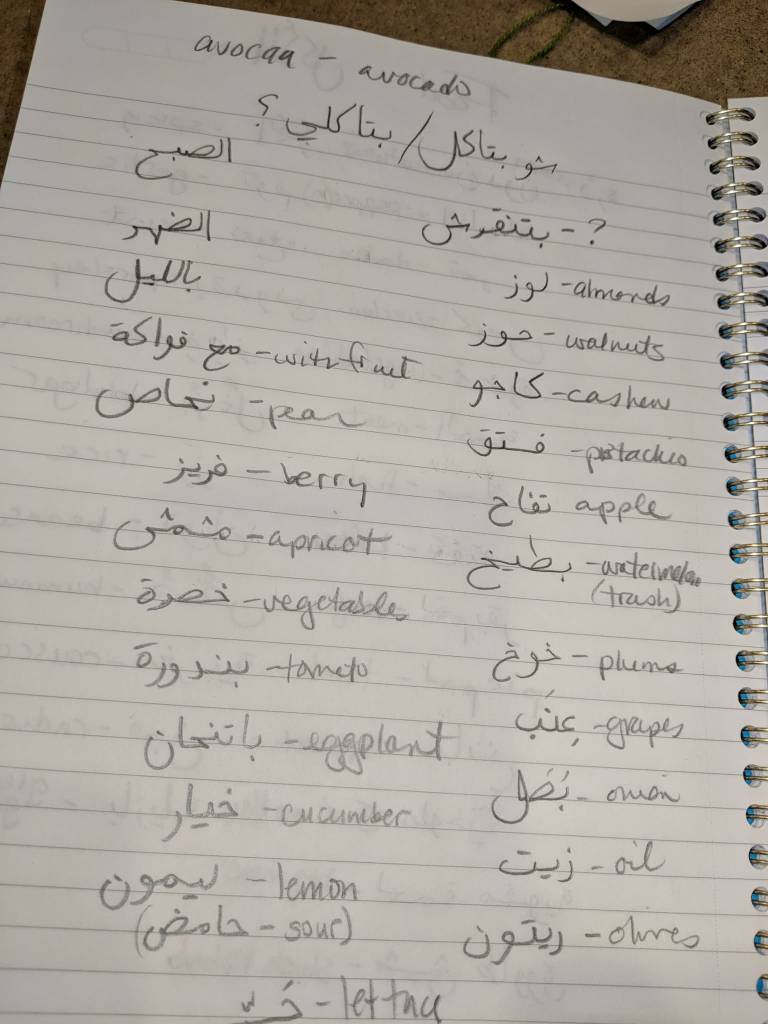 avocaa - avocado
شو بتاكل / بتاكلي ؟
الصبح
? - بتنقرش
الضهر
لوز - almonds
بالليل
حوز - walnuts
مع فواكة - with fruit
كاجو - cashew
نحاص - pear
فستق - pistachio
فريز - berry
تفاح apple
مشمش - apricot
بطيخ - watermelon
(trash)
خصرة - vegetables
خوخ - plums
بندورة - tomato
عِنَب - grapes
باتنحان - eggplant
بَصَل - onion
خيار - cucumber
زيت - oil
ليمون - lemon
(حامض - sour)
ريتون - olives